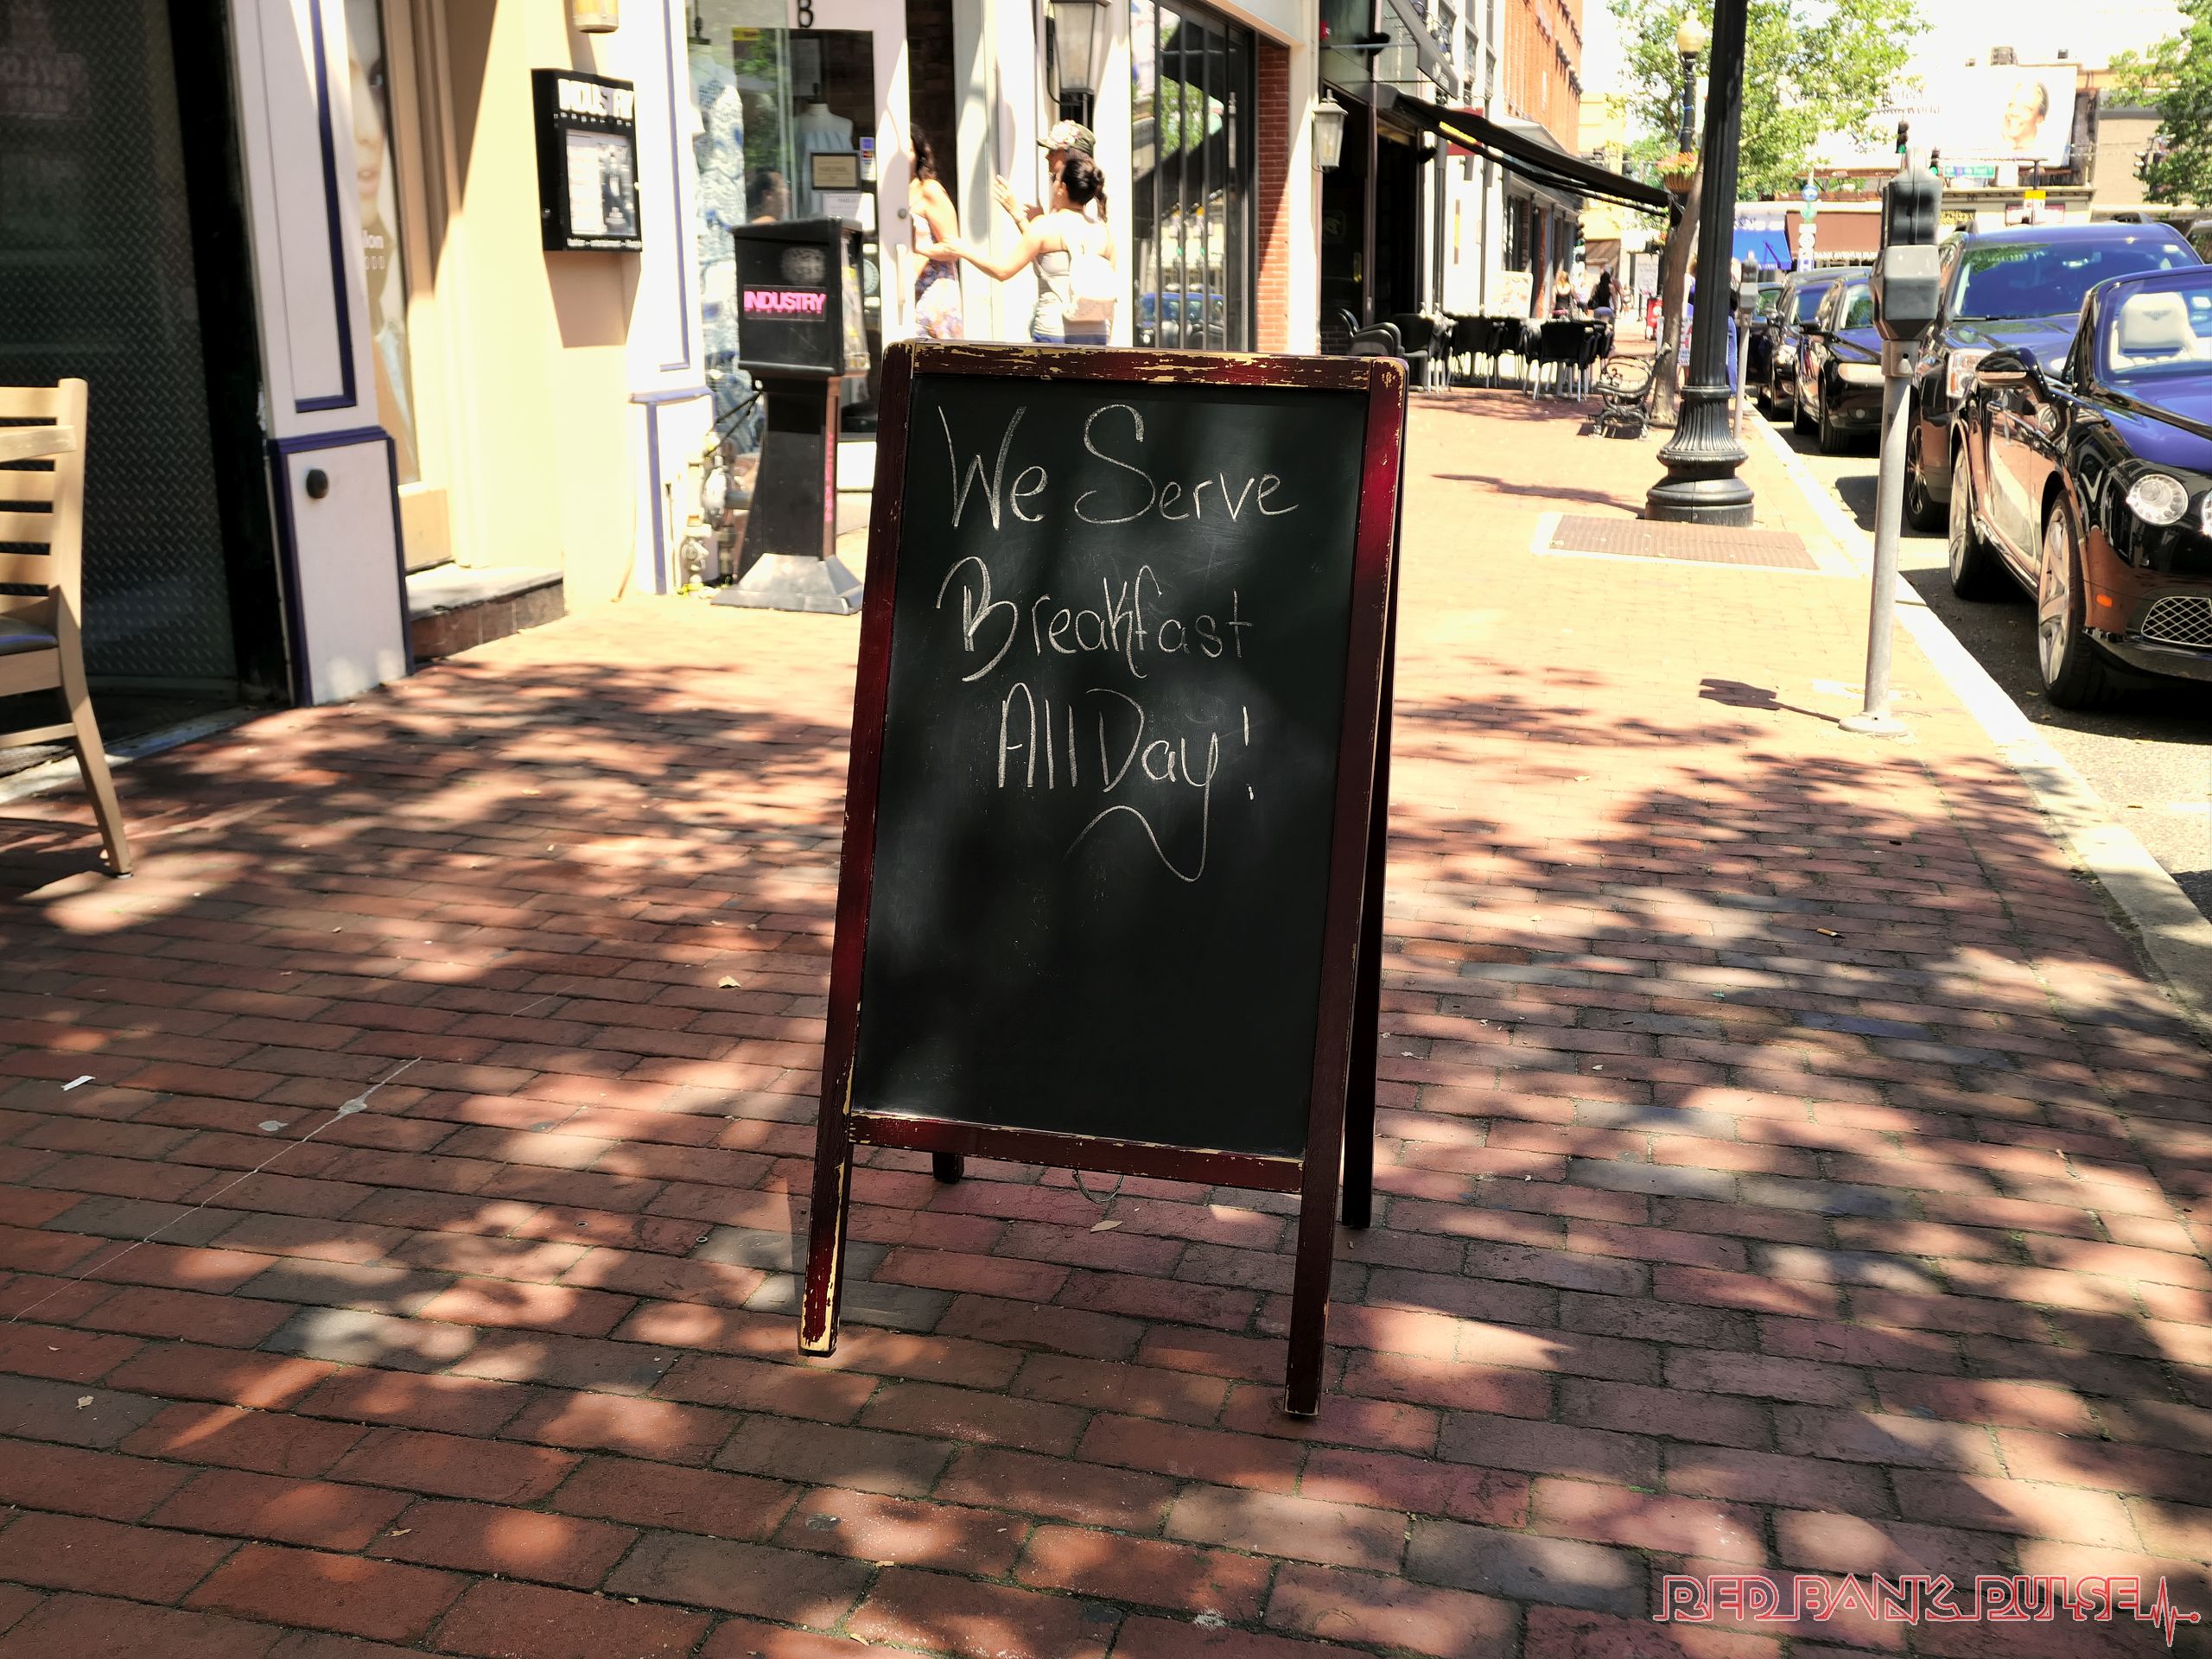 B
INDUSTRY
INDUSTRY
We Serve
Breakfast
All Day!
RED BANK PULSE